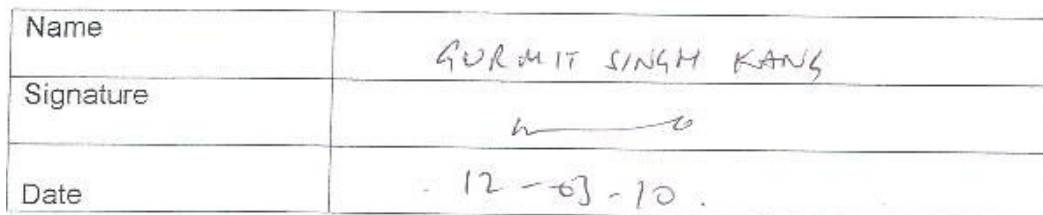 Name
GURMIT SINGH KANG
Signature
Date
12-03-10.